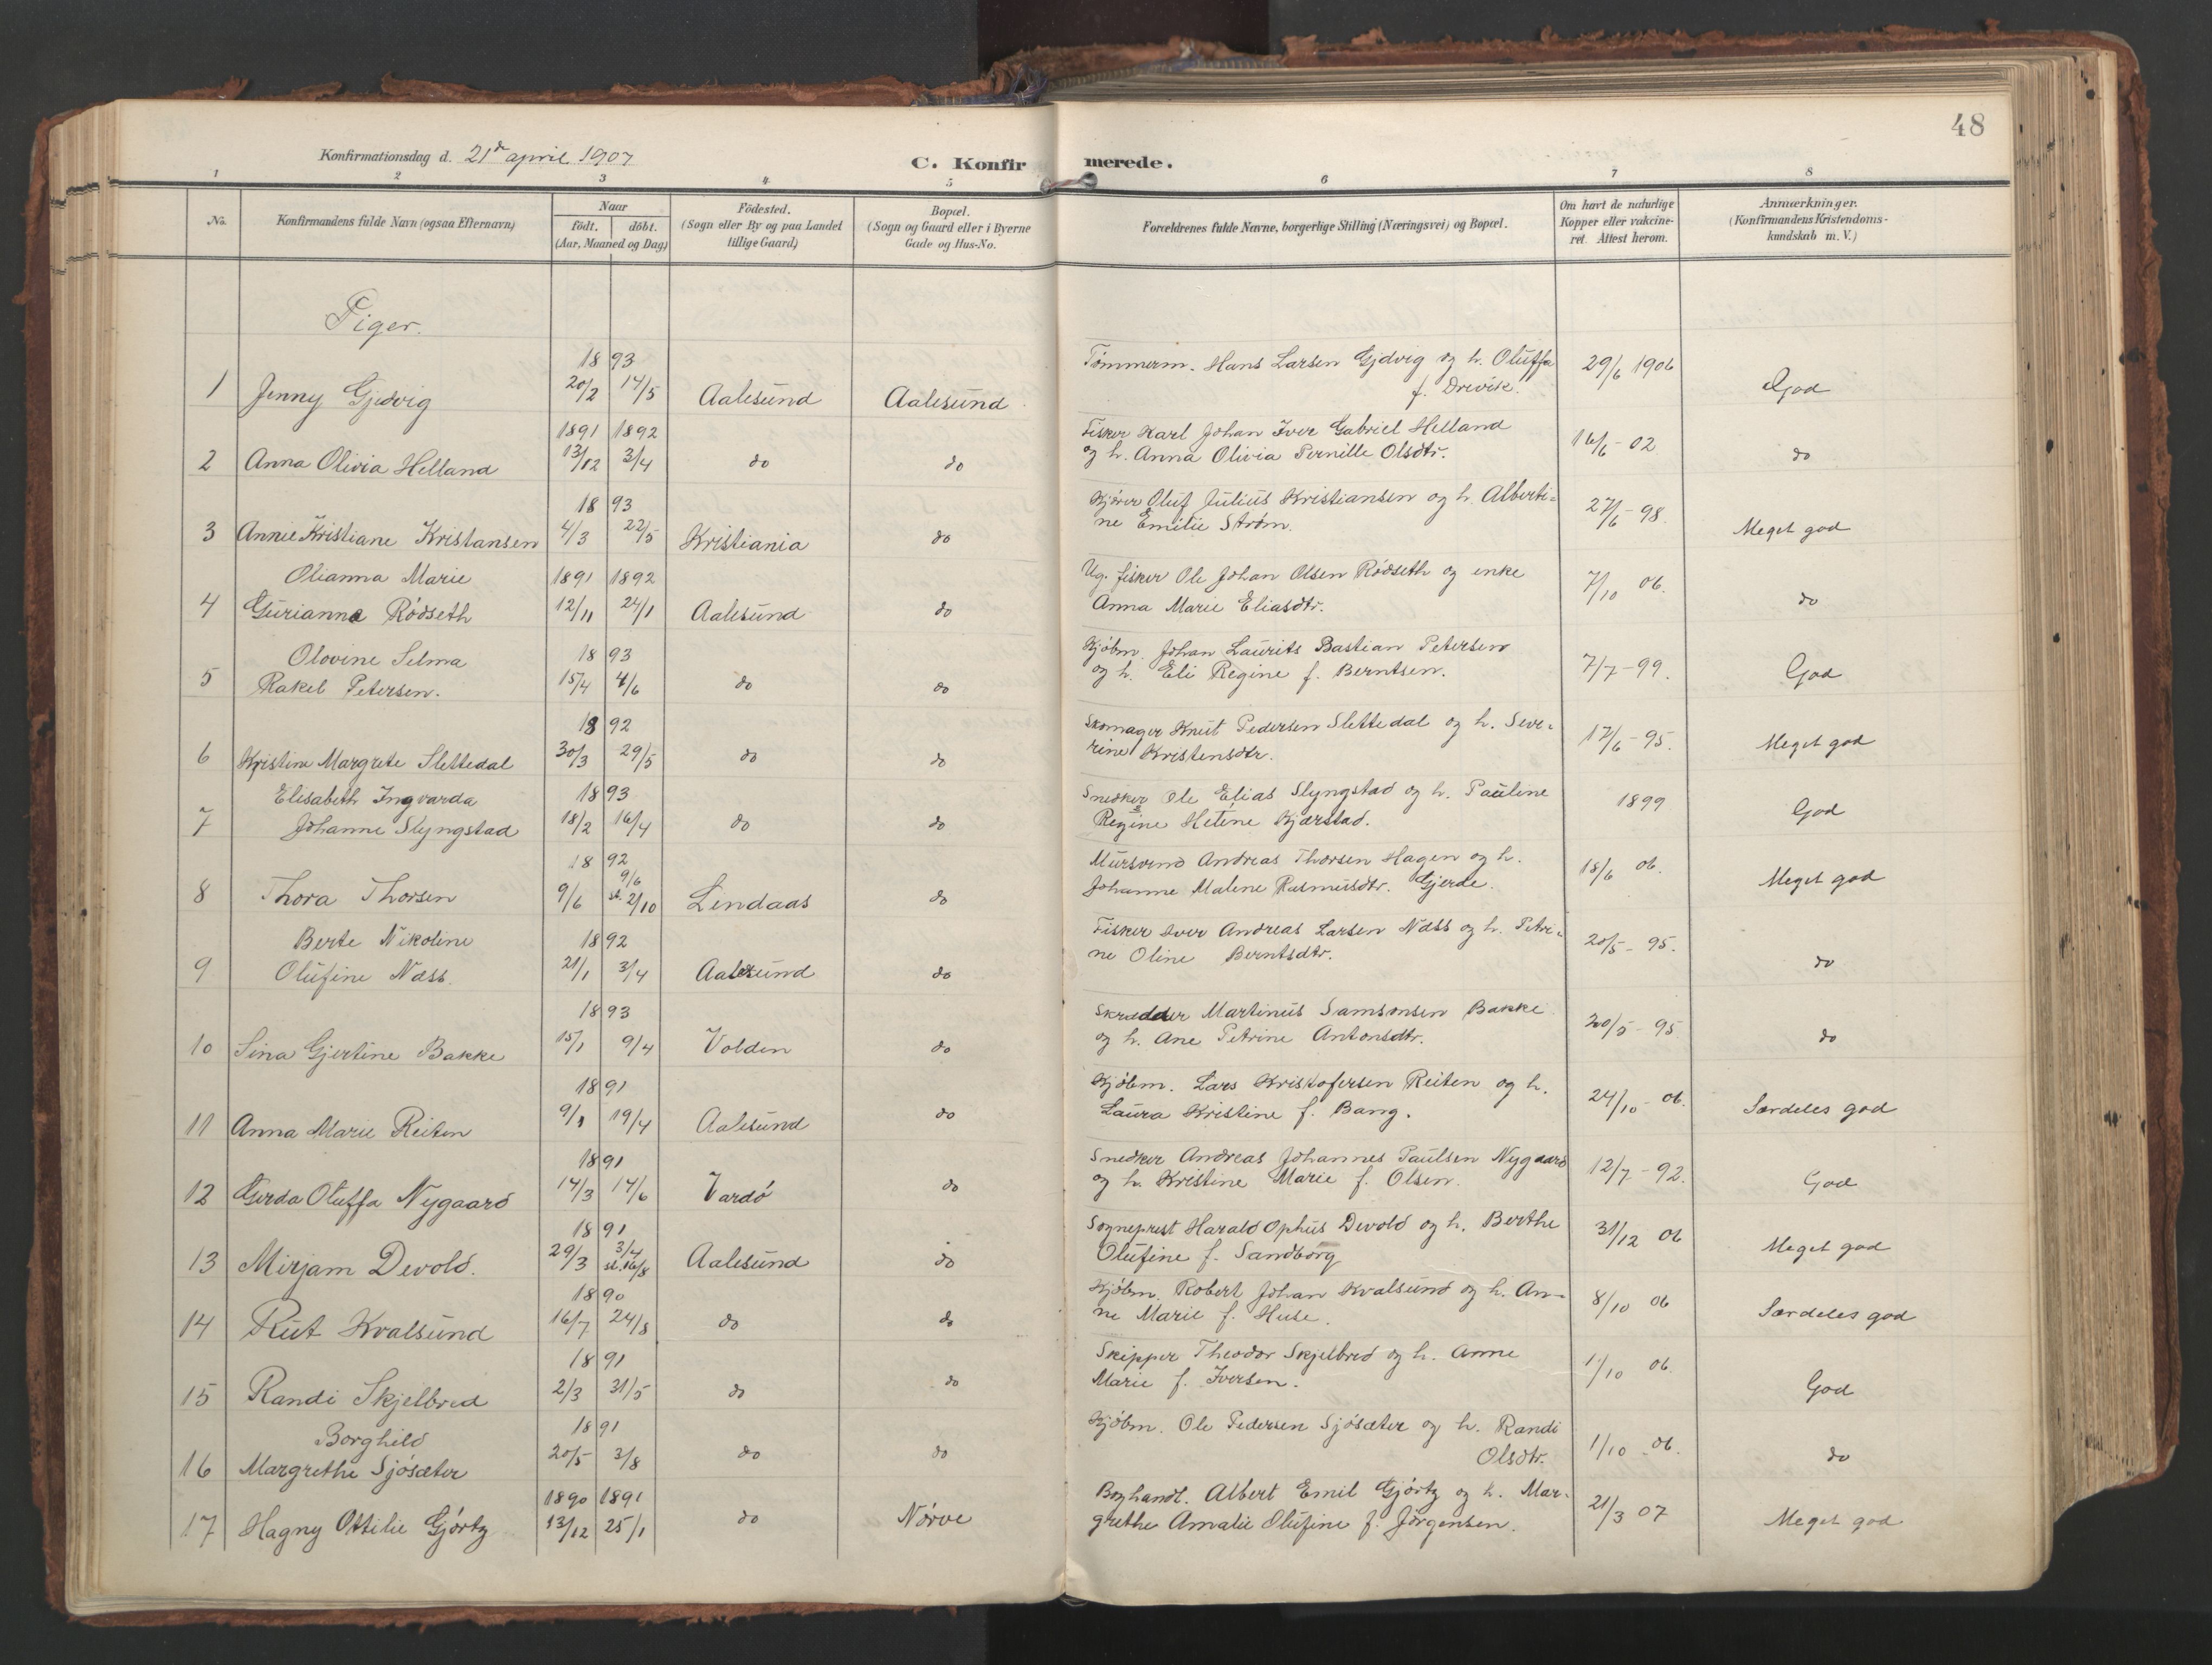 48
Konfirmationsdag d. 21de april 1907
C. Konfirmerede.
1 2 3 4 5 6 7 8
No. Konfirmandens fulde Navn (ogsaa Efternavn) Naar født. døbt. (Aar, Maaned og Dag) Fødested. (Sogn eller By og paa Landet tillige Gaard) Bopæl. (Sogn og Gaard eller i Byerne Gade og Hus-No. Forældrenes fulde Navne, borgerlige Stilling (Næringsvei) og Bopæl. Om havt de naturlige Kopper eller vakcineret. Attest herom. Anmærkninger. (Konfirmandens Kristendomskundskab m. V.)
Piger.
1893 Tømmerm. Hans Larsen Gjdvig og h. Oluffa 29/6 1906
1 Jenny Gjedvig 20/2 14/5 Aalesund Aalesund f. Drevik. God
1891 1892 Fisker Karl Johan Iver Gabriel Helland 16/6-02
2 Anna Olivia Helland 13/12 3/4 do do og h. Anna Olivia Pernille Olsdtr. do
1893 Kjører Oluf Julius Kristiansen og h. Alberti- 27/6-98
3 Annie Kristiane Kristansen 4/3 22/5 Kristiania do ne Emilie Strøm. Meget god
Olianna Marie 1891 1892 Ug. fisker Ole Johan Olsen Rødseth og enke 7/10 06.
4 Gurianna Rødseth 12/11 24/1 Aalesund do Anna Marie Eliasdtr. do
Olovine Selma 1893 Kjøbm. Johan Laurits Bastian Petersen
5 Rakel Petersen. 15/4 4/6 do do og h. Eli Regine f. Berntsen. 7/7-99. God
1892 Skomager Knut Pedersen Slettedal og h. Seve-
6 Kristine Margrete Slettedal 30/3 29/5 do do rine Kristensdtr. 17/6-95. Meget god
Elisabeth Ingvarda 1893 Snedker Ole Elias Slyngstad og h. Pauline 1899
7 Johanne Slyngstad 18/2 16/4 do do Regine Heline Kjærstad. God
1892 9/6 Mursvend Andreas Thorsen Hagen og h. 18/6 06.
8 Thora Thorsen 9/6 st. 2/10 Lindaas do Johanne Malene Rasmusdtr. Gjerde. Meget god
Berte Nikoline 1892 Fisker Iver Andreas Larsen Næss og h. Petri- 20/5-95.
9 Olufine Næss. 21/1 3/4 Aalesund do ne Oline Berntsdtr. do
1893 Skrædder Martinus Samsonsen Bakke 20/5-95
10 Sina Gjertine Bakke 15/1 9/4 Volden do og h. Ane Petrine Antonsdtr. do
1891 Kjøbm. Lars Kristofersen Reiten og h. 24/10-06.
11 Anna Marie Reiten 9/1 19/4 Aalesund do Laura Kristine f. Bang. Særdeles god
1891 Snedker Andreas Johannes Paulsen Nygaard 12/7-92.
12 Gerda Oluffa Nygaard 14/3 14/6 Vardø do og h. Kristine Marie f. Olsen. God
1891 3/4 Sogneprest Harald Ophus Devold og h. Berthe 31/12 06
13 Mirjam Devold. 29/3 st. 16/8 Aalesund do Olufine f. Sandborg Meget god
1890 Kjøbm. Robert Johan Kvalsund og h. An- 8/10 06
14 Rut Kvalsund 16/7 24/8 do do ne Marie f. Huse. Særdeles god
1891 Skipper Theodor Skjelbred og h. Anne 1/10 06.
15 Randi Skjelbred 2/3 31/5 do do Marie f. Iversen. God
Borghild 1891 Kjøbm. Ole Pedersen Sjøsæter og h. Randi
16 Margrethe Sjøsæter 20/5 3/8 do do Olsdtr. 1/10-06. do
1890 1891 Boghandl. Albert Emil Gjørtz og h. Mar- 21/3 07
17 Hagny Ottilie Gjørtz 13/12 25/1 do Nørve grethe Amalie Olufine f. Jørgensen. Meget god